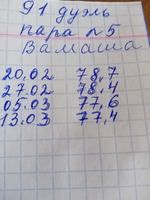 91 дуэль
пара №5
Вамаша
20.02 78,7
27.02 78,4
05.03 77,6
13.03 77,4